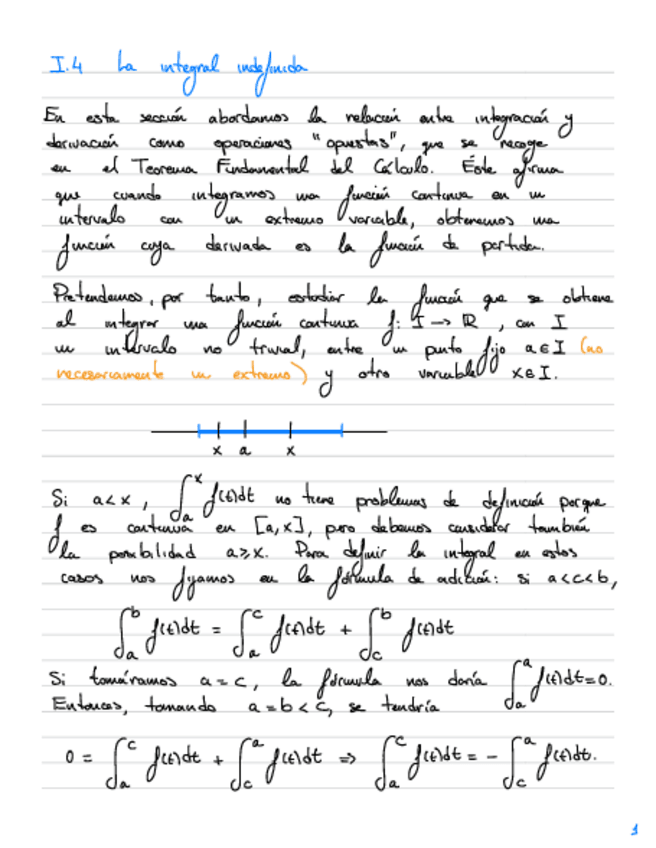 I.4 La integral indefinida
En esta sección abordamos la relación entre integración y
derivación como operaciones "opuestas", que se recoge
en el Teorema Fundamental del Cálculo. Éste afirma
que cuando integramos una función continua en un
intervalo con un extremo variable, obtenemos una
función cuya derivada es la función de partida.
Pretendemos, por tanto, estudiar la función que se obtiene
al integrar una función continua f: I → ℝ, con I
un intervalo no trivial, entre un punto fijo a ∈ I (no
necesariamente un extremo) y otro variable x ∈ I.
x a x
Si a < x, ∫_a^x f(t)dt no tiene problemas de definición porque
f es continua en [a,x], pero debemos considerar también
la posibilidad a ⩾ x. Para definir la integral en estos
casos nos fijamos en la fórmula de adición: si a < c < b,
∫_a^b f(t)dt = ∫_a^c f(t)dt + ∫_c^b f(t)dt
Si tomáramos a = c, la fórmula nos daría ∫_a^a f(t)dt = 0.
Entonces, tomando a = b < c, se tendría
0 = ∫_a^c f(t)dt + ∫_c^a f(t)dt ⇒ ∫_a^c f(t)dt = - ∫_c^a f(t)dt.
1